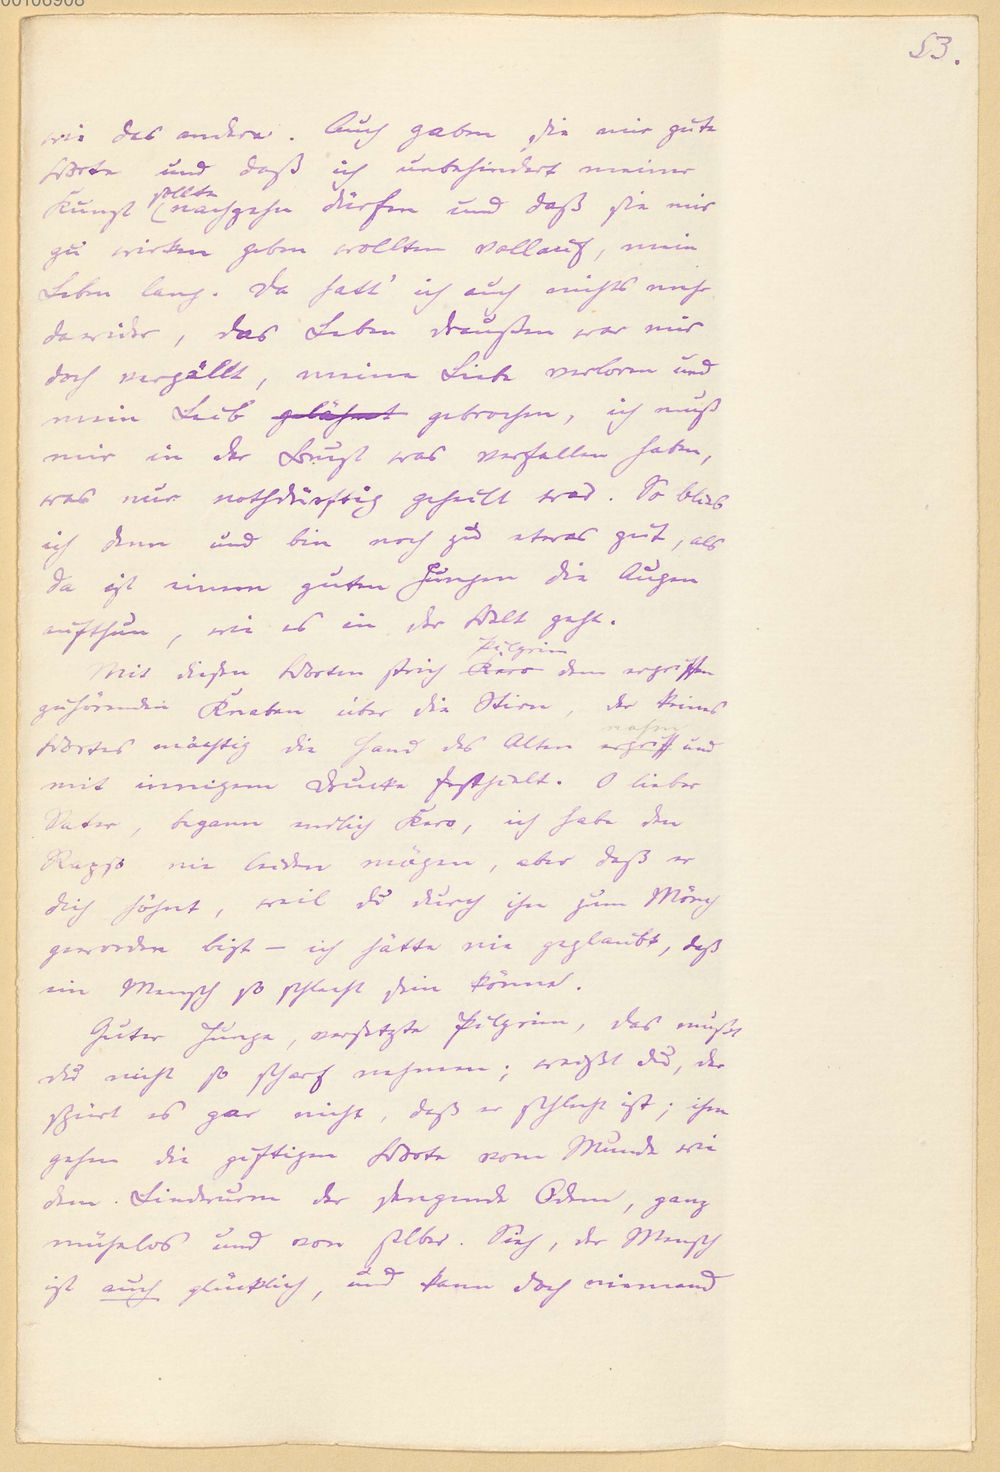 00106908
53.
wie das andere. Auch gaben sie mir gute
Worte und daß ich unbehindert meiner
Kunst sollte nachgehn dürfen und daß sie mir
zu wirken geben wollten vollauf, mein
Leben lang. Da hatt' ich auch nichts mehr
dawider, das Leben draußen war mir
doch vergällt, meine Liebe verloren und
mein Leib gelähmt gebrochen, ich muß
mir in der Brust was verfallen haben,
was nur nothdürftig geheilt war. So blieb
ich denn und bin noch zu etwas gut, als
da ist einem guten Jungen die Augen
aufthun, wie es in der Welt geht.
Pilgrim
Mit diesen Worten strich Kero dem ergriffen
zuhörenden Knaben über die Stirn, der keines
nahm
Wortes mächtig die Hand des Alten ergriff und
mit innigem Drucke festhielt. O lieber
Vater, begann endlich Kero, ich habe den
Rapso nie leiden mögen, aber daß er
dich höhnt, weil du durch ihn zum Mönch
geworden bist – ich hätte nie geglaubt, daß
ein Mensch so schlecht sein könne.
Guter Junge, versetzte Pilgrim, das mußt
du nicht so scharf nehmen; weißt du, der
spürt es gar nicht, daß er schlecht ist; ihm
gehen die giftigen Worte vom Munde wie
dem Lindwurm der sengende Odem, ganz
mühelos und von selber. Sieh, der Mensch
ist auch glücklich, und kann doch niemand